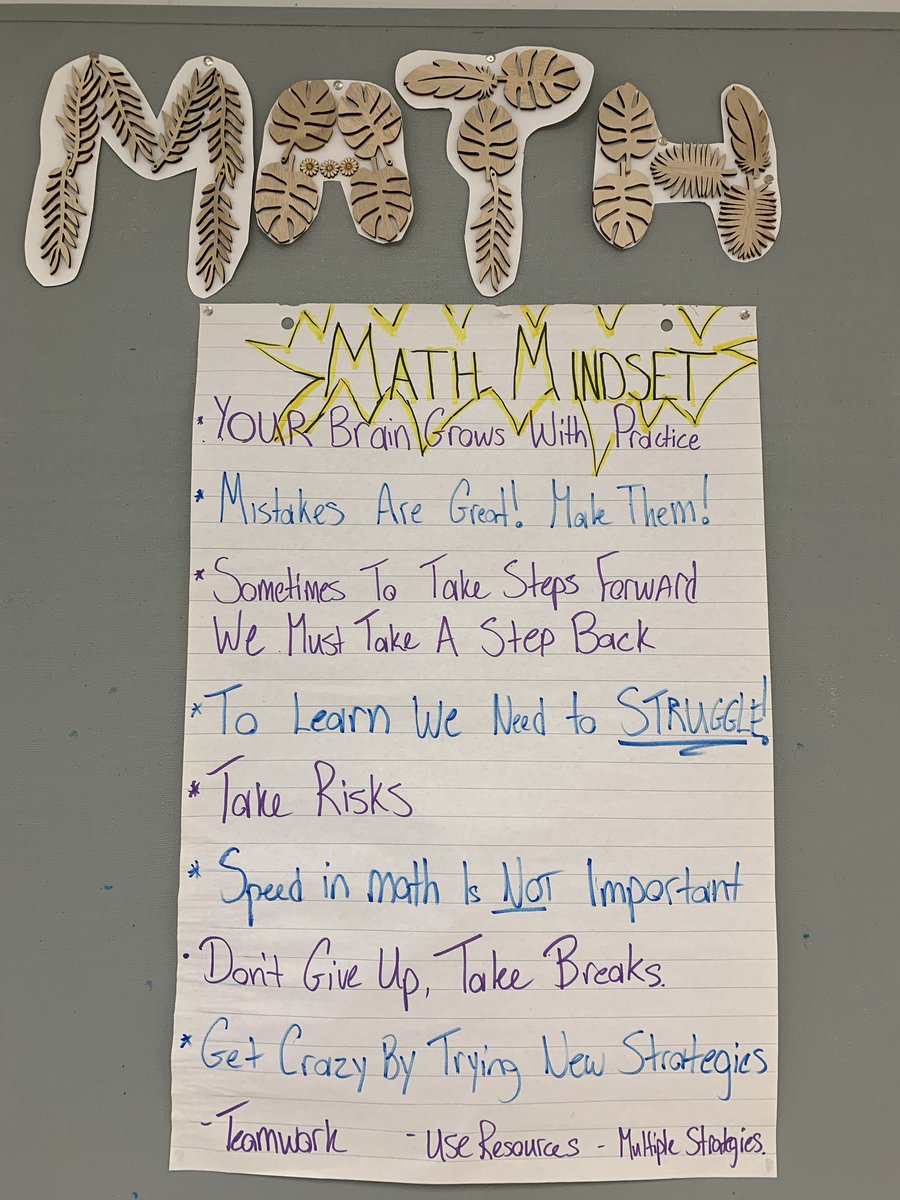 MATH
MATH MINDSET
· YOUR Brain Grows With Practice
* Mistakes Are Great! Make Them!
* Sometimes To Take Steps Forward
We Must Take A Step Back
* To Learn We Need to STRUGGLE!
* Take Risks
* Speed in math Is NOT Important
· Don't Give Up, Take Breaks.
* Get Crazy By Trying New Strategies
- Teamwork - Use Resources - Multiple Strategies.